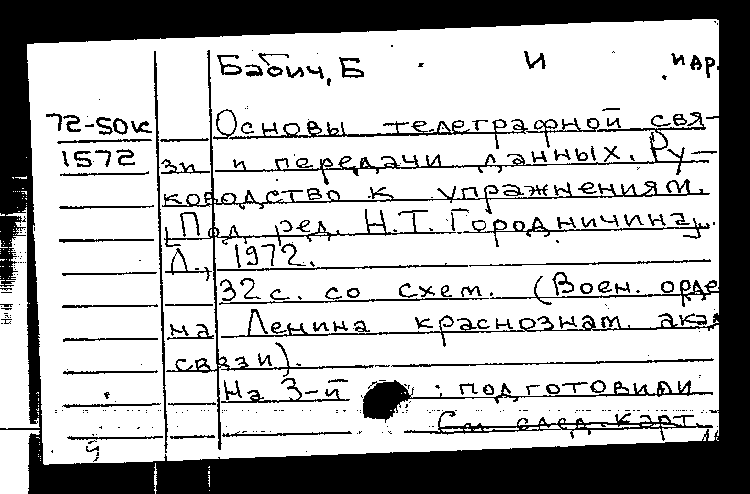 Бабич, Б. И и др.
72-50к Основы телеграфной свя-
1572 зи и передачи данных. Ру-
ководство к упражнениям.
Под ред. Н.Т. Городничина,.
Л., 1972.
32 с. со схем. (Воен. орде
на Ленина краснознам. ака
связи).
На 3-й : подготовили
См след. карт.